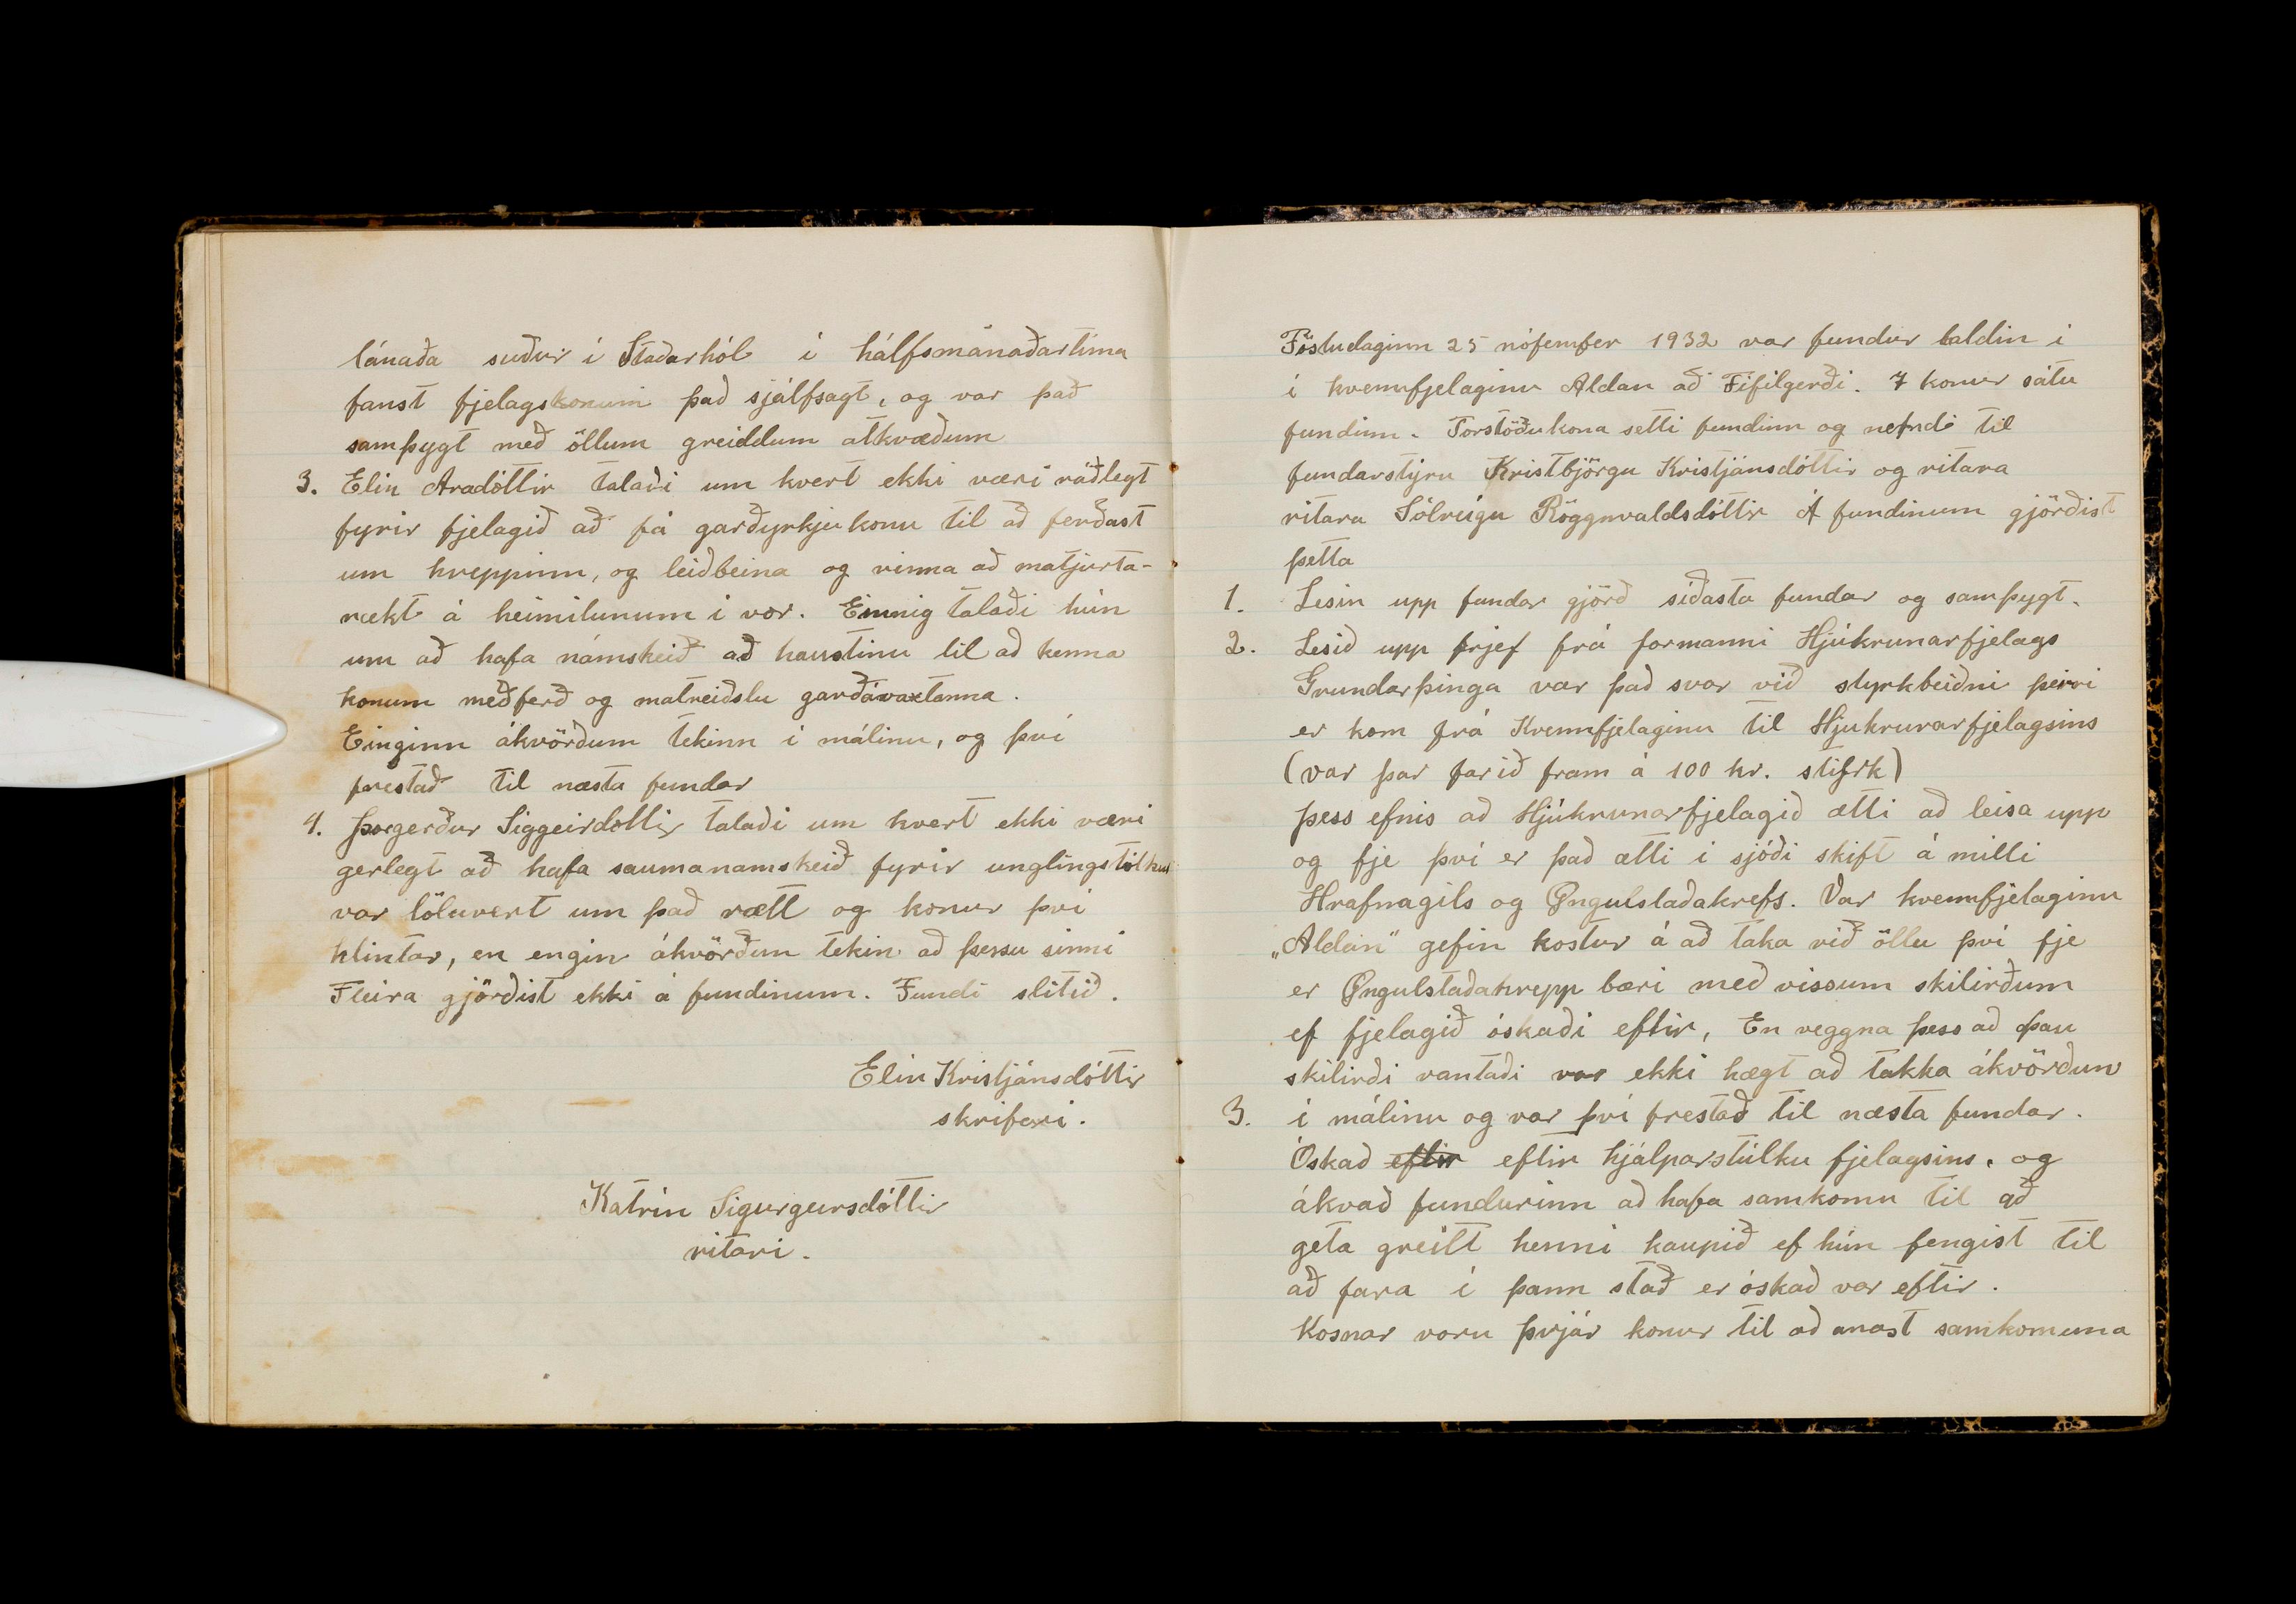 lánaða suður í Staðarhól í hálfsmánaðartíma
fanst fjelagskonum það sjálfsagt, og var það
samþygt með öllum greiddum atkvæðum
3. Elin Aradóttir talaði um hvert ekki væri ráðlegt
fyrir fjelagið að fá garðyrkjukonu til að ferðast
um hreppinn, og leiðbeina og vinna að matjurta-
rækt á heimilunum í vor. Einnig talaði hún
um að hafa námskeið að haustinu til að kenna
konum meðferð og matreiðslu garðávaxtanna.
Einginn ákvörðum tekinn í málinu, og því
frestað til næsta fundar
4. Þorgerður Siggeirdóttir talaði um hvert ekki væri
gerlegt að hafa saumanamskeið fyrir unglingstúlkur
var töluvert um það rætt og konur því
hlintar, en engin ákvörðun tekin að þessu sinni
Fleira gjörðist ekki á fundinum. Fundi slitið.
Elin Kristjánsdóttir
skrifari.
Katrín Sigurgeirsdóttir
ritari.
Föstudaginn 25 nófemfer 1932 var fundur haldin í
í kvennfjelaginu Aldan að Fífilgerði. 7 konur sátu
fundinn. Forstöðukona setti fundinn og nefndi til
fundarstýru Kristbjörgu Kristjánsdóttir og ritara
ritara Sólveigu Röggnvaldsdóttir Á fundinum gjörðist
þetta
1. Lesin upp fundar gjörð síðasta fundar og samþygt.
2. Lesið upp frjef frá formanni Hjúkrunarfjelags
Grundarþinga var það svar við styrkbeiðni þeirri
er kom frá Kvennfjelaginu til Hjukrurarfjelagsins
(var þar farið fram á 100 kr. stifrk)
þess efnis að Hjúkrunarfjelagið ætti að leisa upp
og fje því er það ætti í sjóði skift á milli
Hrafnagils og Öngulstaðakrefs. Var kvennfjelaginu
„Aldan" gefin kostur á að taka við öllu því fje
er Öngulstaðahrepp bæri með vissum skilirðum
ef fjelagið óskaði eftir, En veggna þess að þau
skilirði vantaði var ekki hægt að takka ákvörðun
3. í málinu og var því frestað til næsta fundar.
Óskað eftir eftir hjálparstúlku fjelagsins, og
ákvað fundurinn að hafa samkomu til að
geta greitt henni kaupið ef hún fengist til
að fara í þann stað er óskað var eftir.
Kosnar voru þrjár konur til að anast samkomuna